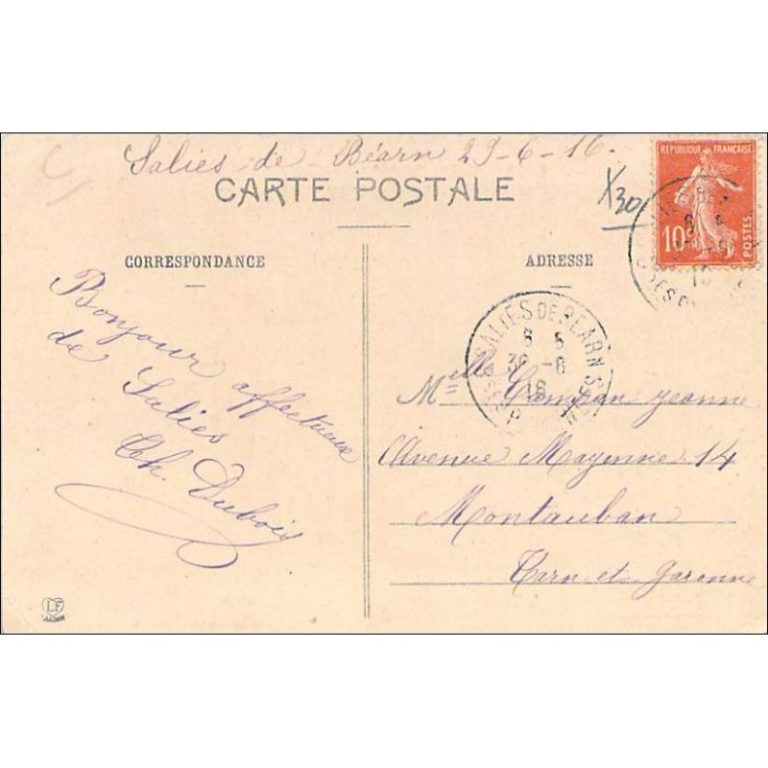 Salies-de-Béarn 29-6-16-
CARTE POSTALE
X30
RÉPUBLIQUE FRANÇAISE
10c
POSTES
CORRESPONDANCE
ADRESSE
Bonjour affectueux
de Salies
Ch. Dubois
SALIES DE BEARN
Melle Jeanne
Avenue Mayenne 14
Montauban
Tarn et Garonne
LF